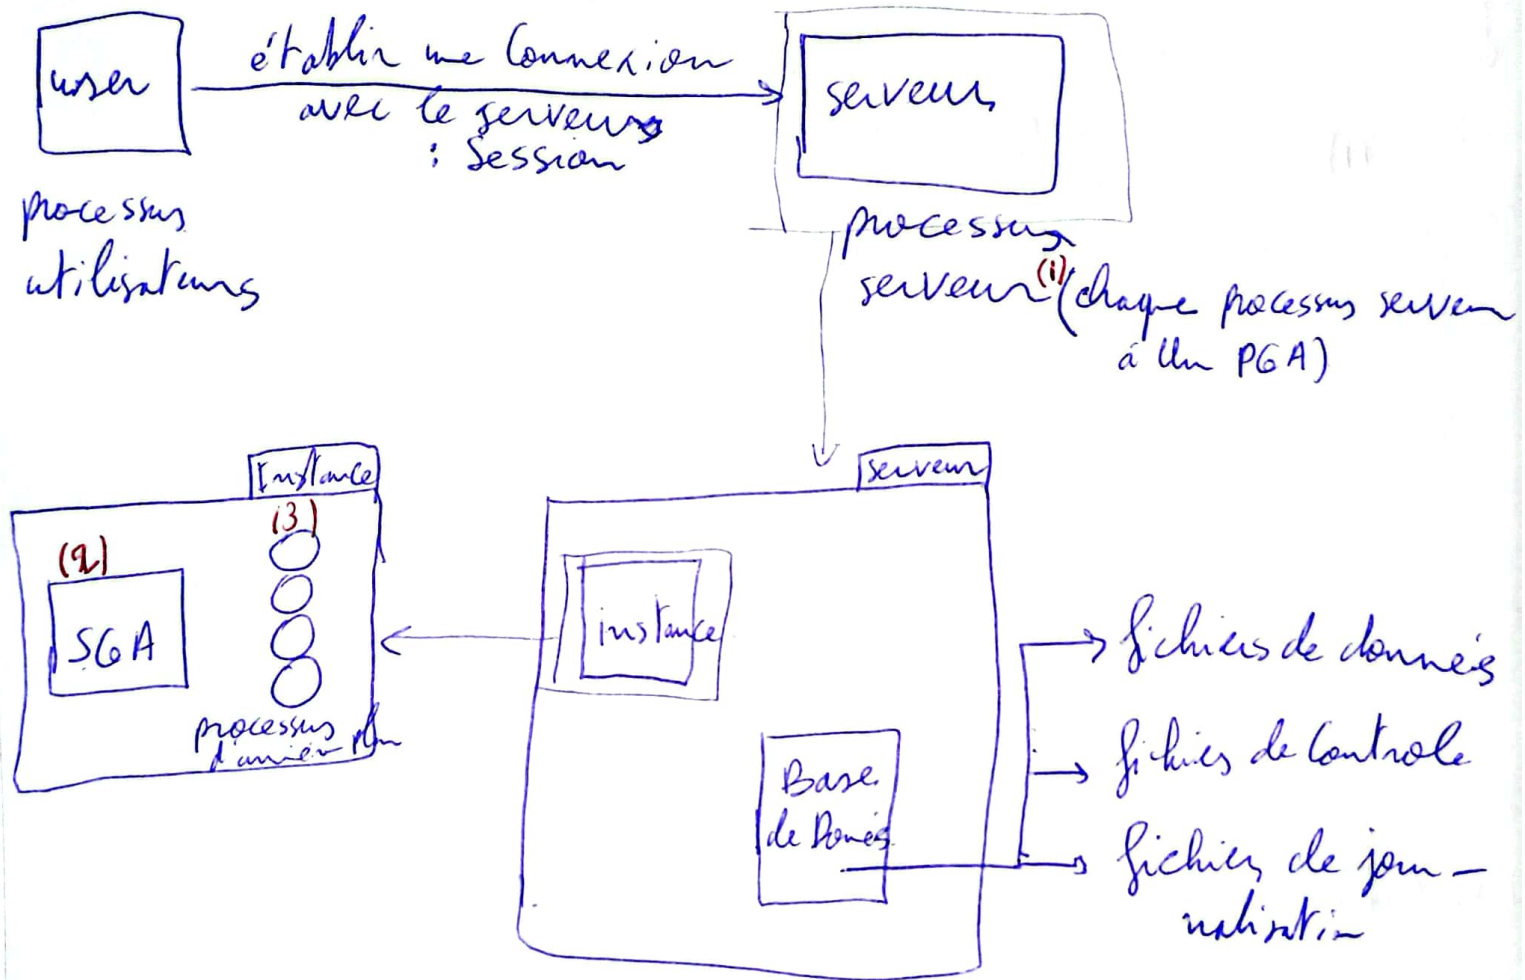 user
établir une connexion
avec le serveurs
: Session
serveurs
processus
utilisateurs
processus
serveur (1) (chaque processus serveur
à Un PGA)
Instance
(2)
(3)
SGA
processus
d'arrière plan
serveur
instance
Base
de Donnés
fichiers de données
fichiers de Controle
fichiers de jour-
nalisation